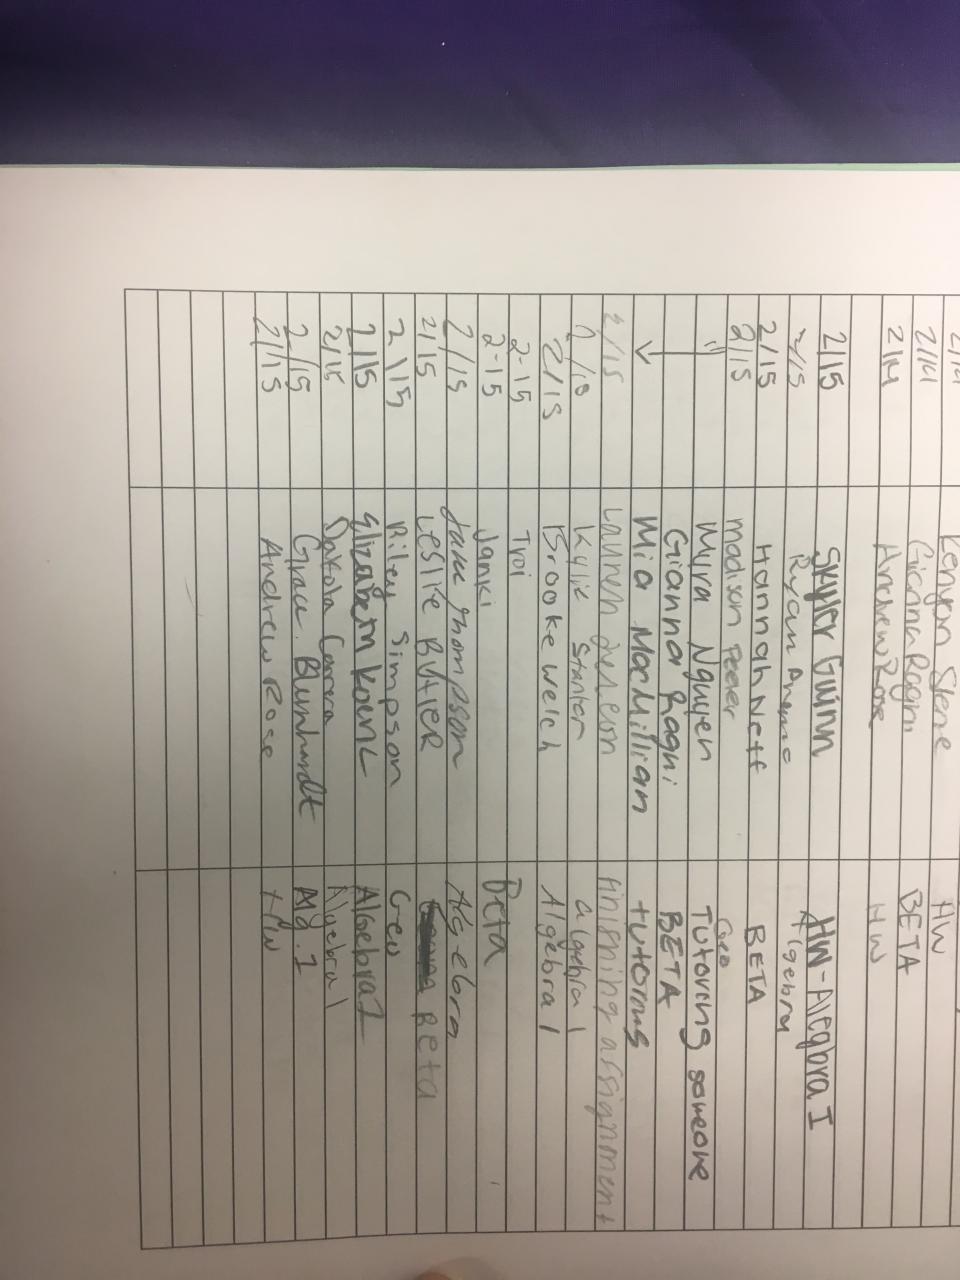 2/14 Kenyon HW
2/14 Gianna Ragni BETA
2/14 Andrew Rose HW
2/15 Skyler Guinn HW-Alegbra I
2/15 Ryan Algebra
2/15 Hannah Neff BETA
2/15 Madison Feeler Geo
" Myra Nguyen Tutoring someone
Gianna Ragni BETA
Mia MacMillian tutoring
2/15 Lauren finishing assignment
Kylie algebra 1
2/15 Brooke Welch Algebra 1
2-15 Troi
2-15 Janki Beta
2/15 Thompson Algebra
2/15 Leslie Butler Beta
2/15 Riley Simpson Geo
2/15 Elizabeth Algebra 1
2/15 Dakota Correra Algebra 1
2/15 Grace Alg. 1
2/15 Andrew Rose HW